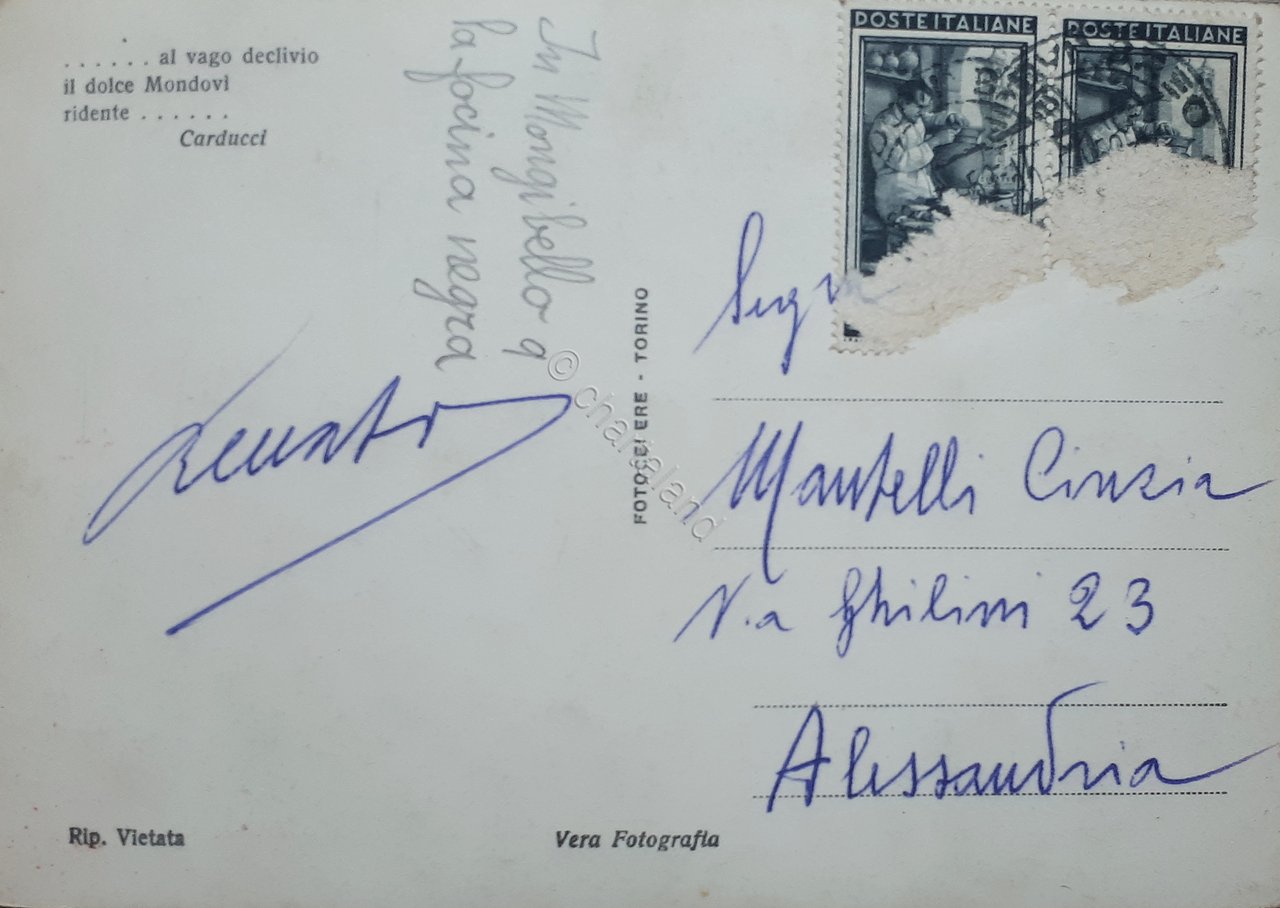 . . . . . . al vago declivio
il dolce Mondovì
ridente . . . . . .
Carducci
In Mongibello a
la focina negra
Renato
FOTOCELERE - TORINO
POSTE ITALIANE
POSTE ITALIANE
Mantelli Cinzia
Via Ghilini 23
Alessandria
Rip. Vietata
Vera Fotografia
© chartaland